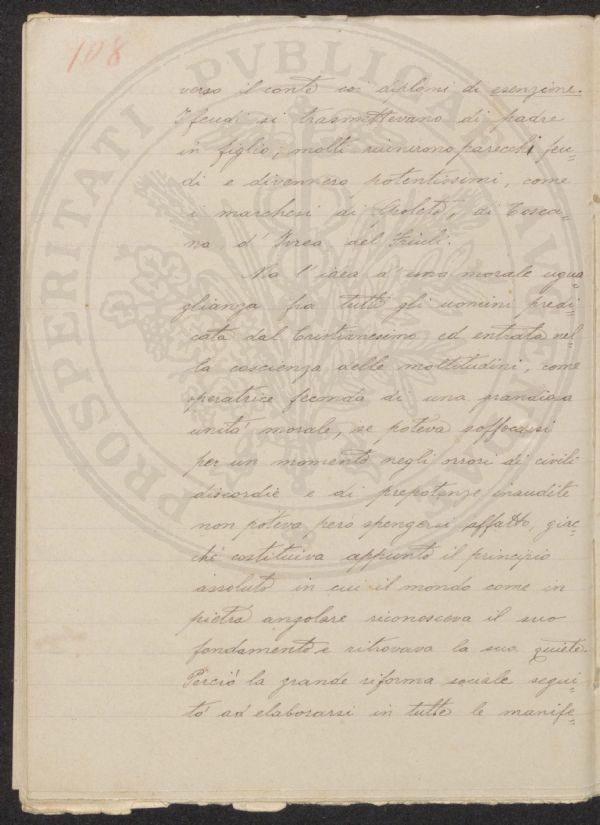 108
verso il conte coi diplomi di esenzione.
I feudi si trasmettevano di padre
in figlio; molti riunirono parecchi feu=
di e divennero potentissimi, come
i marchesi di Spoleto, di Tosca=
na, d'Ivrea, del Friuli.
Ma l'idea d'una morale ugua=
glianza fra tutti gli uomini predi=
cata dal Cristianesimo ed entrata nel=
la coscienza delle moltitudini, come
operatrice feconda di una grandiosa
unità morale, se poteva soffocarsi
per un momento negli orrori di civili
discordie e di prepotenze inaudite
non poteva però spengersi affatto, giac=
chè costituiva appunto il principio
assoluto in cui il mondo come in
pietra angolare riconosceva il suo
fondamento e ritrovava la sua quiete.
Perciò la grande riforma sociale segui=
tò ad elaborarsi in tutte le manife=
PROSPERITATI PVBLICAE AVGENDAE